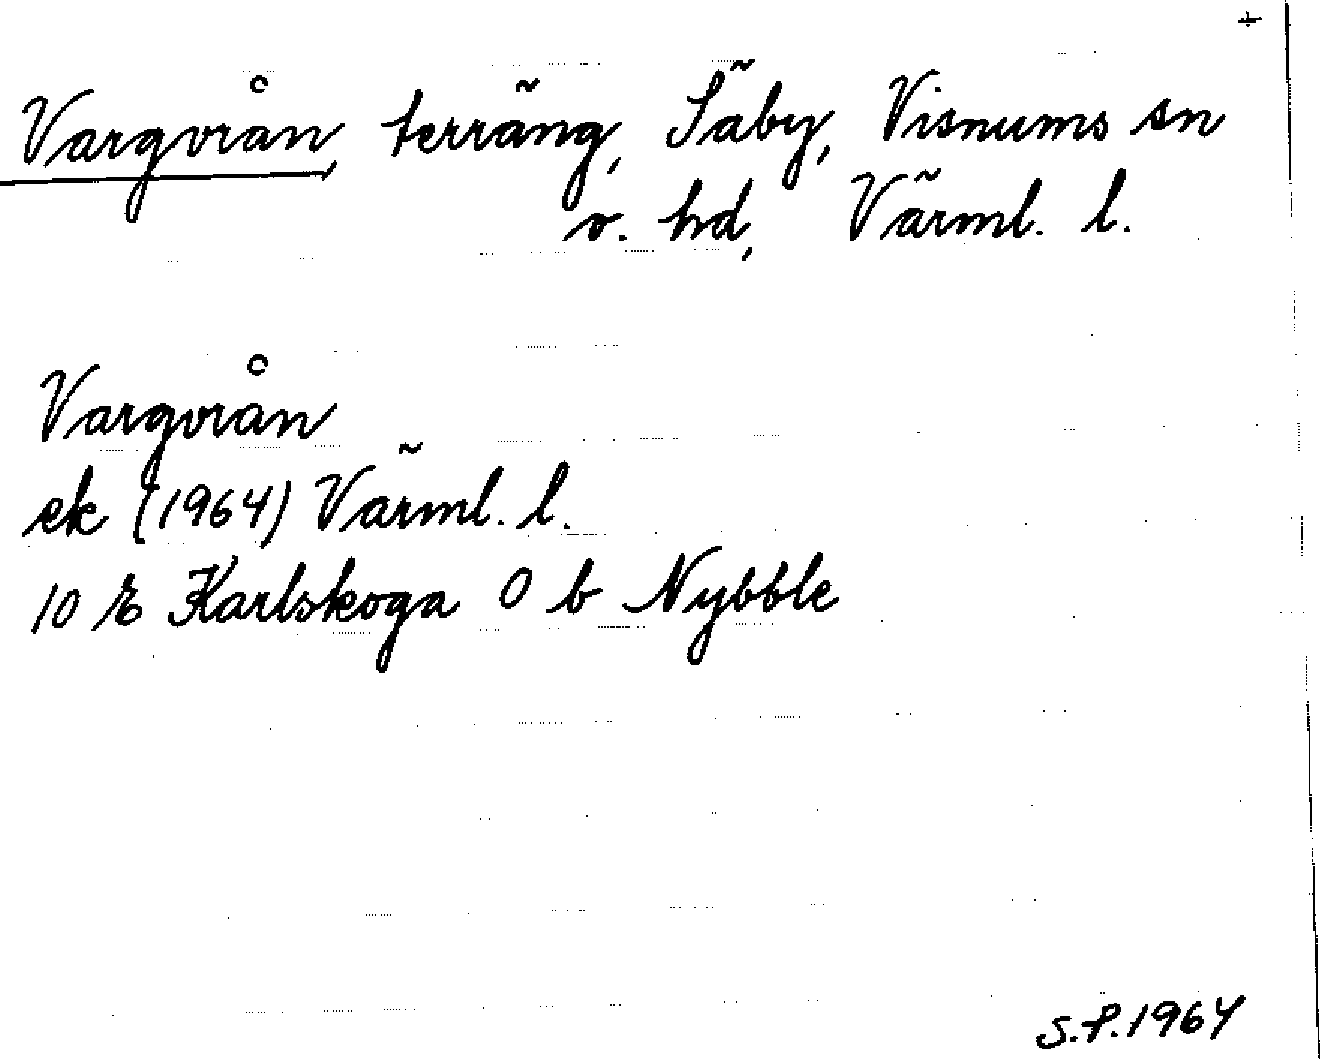 +
Vargvrån, terräng, Säby, Visnums sn
o. hd, Värml. l.
Vargvrån
ek (1964) Värml. l.
10 E Karlskoga 0 b Nybble
S.P. 1964